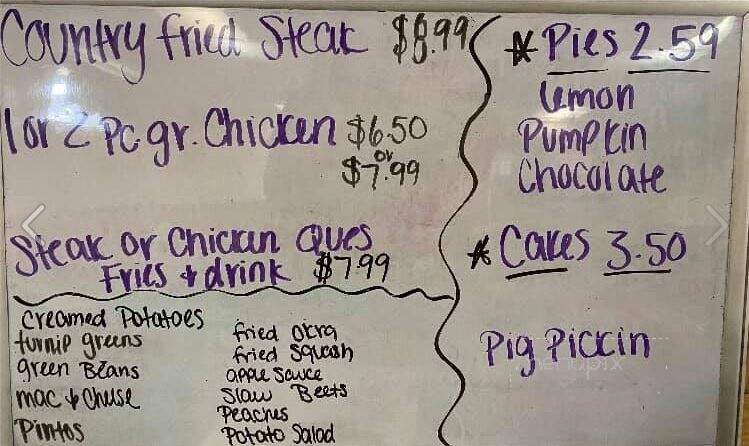 Country fried Steak $8.99
1 or 2 pc. gr. Chicken $6.50
or
$7.99
Steak or Chicken Ques
Fries + drink $7.99
Creamed Potatoes
turnip greens
green Beans
mac & Cheese
Pintos
fried okra
fried Squash
apple Sauce
Slaw Beets
Peaches
Potato Salad
* Pies 2.59
Lemon
Pumpkin
Chocolate
* Cakes 3.50
Pig Pickin